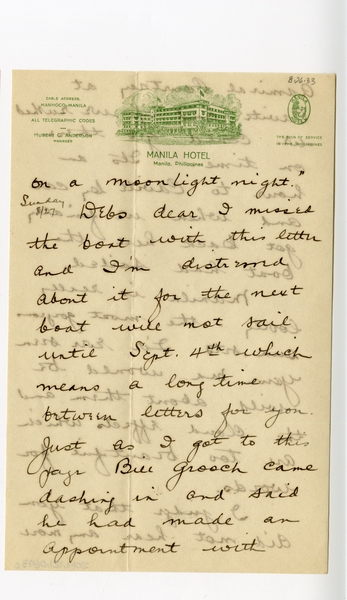 8-26-33
CABLE ADDRESS
MANHOCO-MANILA
ALL TELEGRAPHIC CODES
HUBERT C. ANDERSON
MANAGER
MANILA HOTEL
Manila, Philippines
THE SIGN OF SERVICE
IN THE PHILIPPINES
on a moonlight night."
Sunday
8/27
Debs dear I missed
the boat with this letter
and I'm distressed
about it for the next
boat will not sail
until Sept. 4th which
means a long time
between letters for you.
Just as I got to this
page Bill Grooch came
dashing in and said
he had made an
appointment with